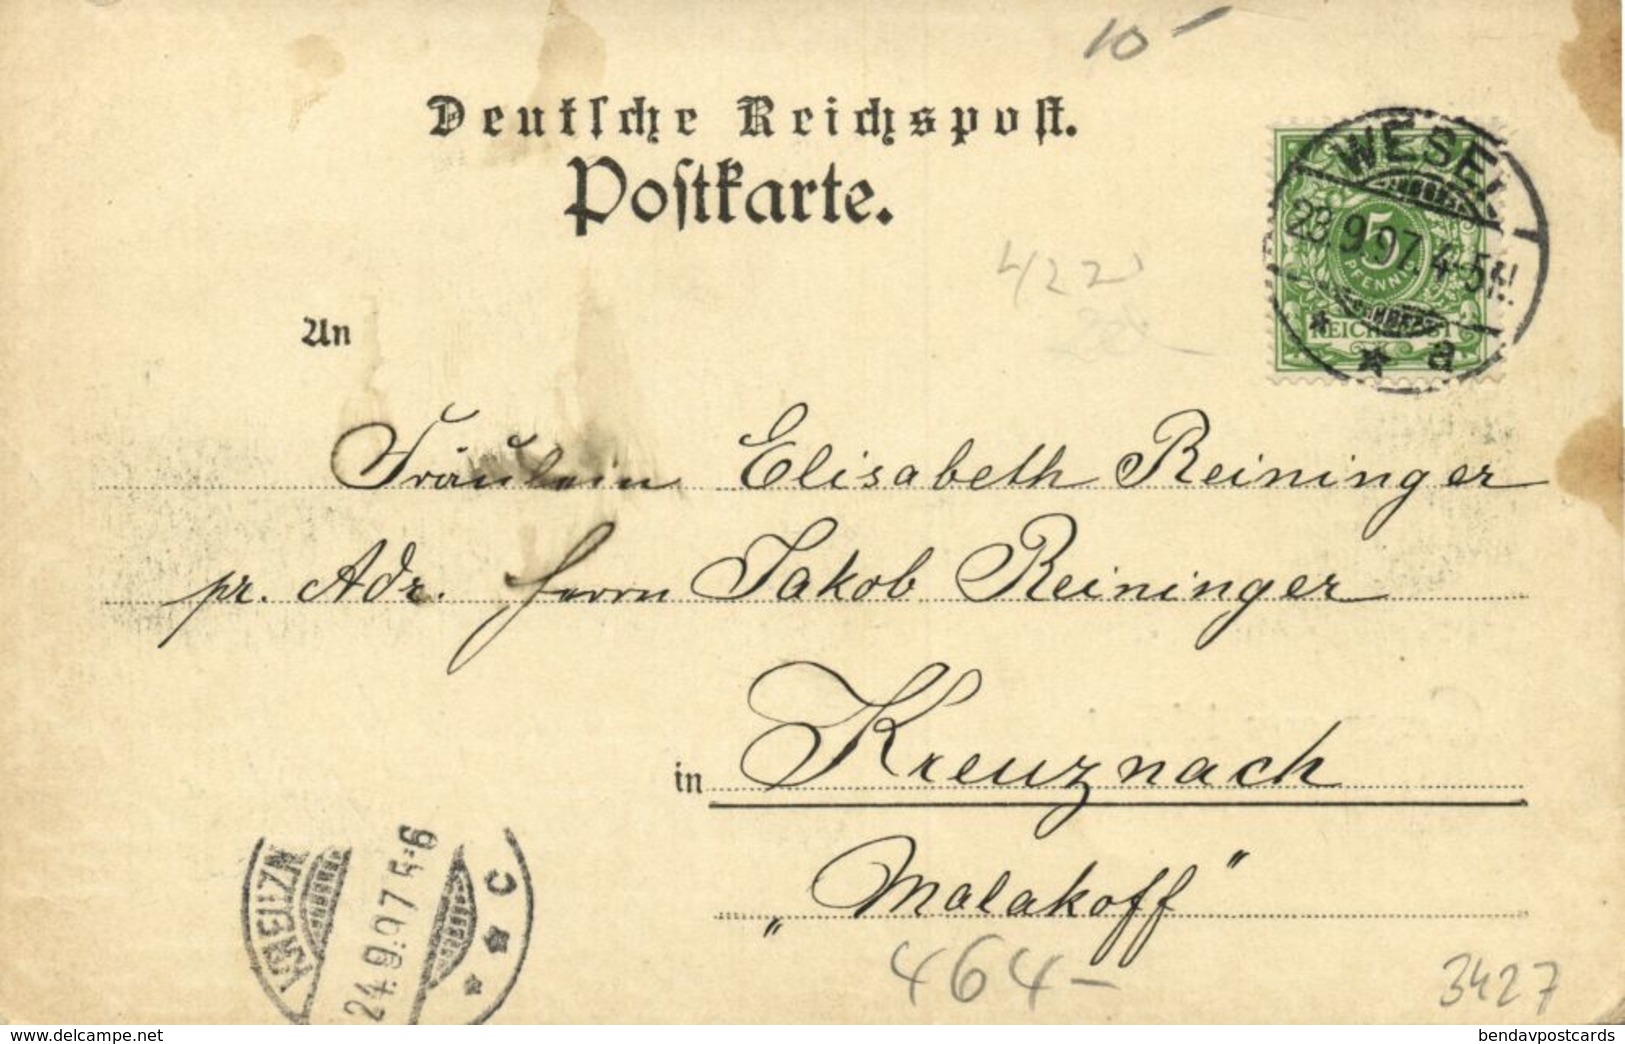 10-
Deutsche Reichspost.
Postkarte.
WESEL
23.9.97. 4-5N
5
PFENNIG
REICHSPOST
* * a
422
An
Fräulein Elisabeth Reininger
pr. Adr. Herrn Jakob Reininger
in Kreuznach
„Malakoff"
KREUZN
24.9.97 5-6
* * c
464-
3427
www.delcampe.net
bendavpostcards